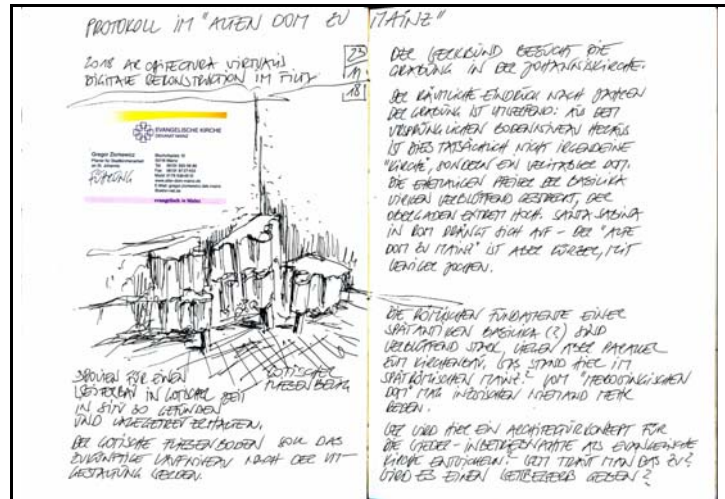 PROTOKOLL IM "ALTEN DOM ZU MAINZ"
2018 ARCHITECTURA VIRTUALIS
DIGITALE REKONSTRUKTION IM FILM
23
11
18
EVANGELISCHE KIRCHE
DEKANAT MAINZ
Gregor Ziorkewicz
Pfarrer für Stadtkirchenarbeit
an St. Johannis
FÜHRUNG
Bischofsplatz 10
55116 Mainz
evangelisch in Mainz
SPOLIEN FÜR EINEN
IN GOTISCHER ZEIT
IN SITU SO GEFUNDEN
UND LAGEGETREU ERHALTEN.
GOTISCHER
FLIESENBELAG
DER GOTISCHE FLIESENBODEN SOLL DAS
ZUKÜNFTIGE LAUFNIVEAU NACH DER UM-
GESTALTUNG WERDEN.
DER WERKBUND BESUCHT DIE
GRABUNG IN DER JOHANNISKIRCHE.
DER RÄUMLICHE EINDRUCK NACH JAHREN
DER GRABUNG IST UMWERFEND: AUS DEM
URSPRÜNGLICHEN BODENNIVEAU HERAUS
IST DIES TATSÄCHLICH NICHT IRGENDEINE
"KIRCHE", SONDERN EIN VERITABLER DOM.
DIE EHEMALIGEN PFEILER DER BASILIKA
WIRKEN VERBLÜFFEND GESTRECKT, DER
OBERGADEN EXTREM HOCH. SANTA SABINA
IN ROM DRÄNGT SICH AUF – DER "ALTE
DOM ZU MAINZ" IST ABER KÜRZER, MIT
WENIGER JOCHEN.
DIE RÖMISCHEN FUNDAMENTE EINER
SPÄTANTIKEN BASILIKA (?) SIND
VERBLÜFFEND STARK, LIEGEN ABER PARALLEL
ZUM KIRCHENBAU. WAS STAND HIER IM
SPÄTRÖMISCHEN MAINZ? VOM "MEROWINGISCHEN
DOM" MAG INZWISCHEN NIEMAND MEHR
REDEN.
WER WIRD HIER EIN ARCHITEKTURKONZEPT FÜR
DIE WIEDER-INBETRIEBNAHME ALS EVANGELISCHE
KIRCHE ENTWICKELN? WEM TRAUT MAN DAS ZU?
WIRD ES EINEN WETTBEWERB GEBEN?